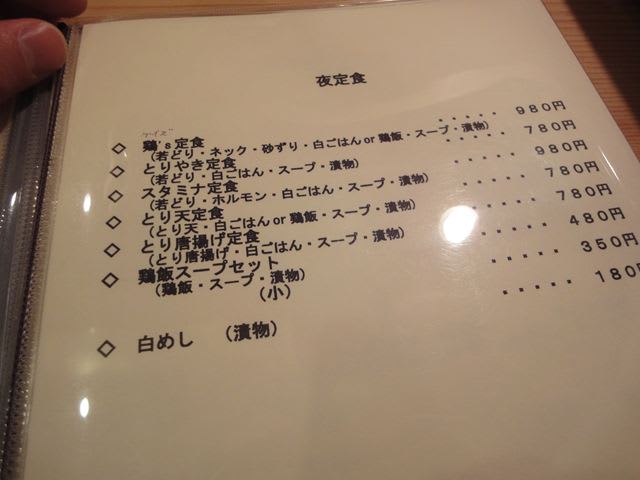 夜定食
◇ 鶏's定食 ・・・・・ 980円
(若どり・ネック・砂ずり・白ごはん or 鶏飯・スープ・漬物)
◇ とりやき定食 ・・・・・ 780円
(若どり・白ごはん・スープ・漬物)
◇ スタミナ定食 ・・・・・ 980円
(若どり・ホルモン・白ごはん・スープ・漬物)
◇ とり天定食 ・・・・・ 780円
(とり天・白ごはん or 鶏飯・スープ・漬物)
◇ とり唐揚げ定食 ・・・・・ 780円
(とり唐揚げ・白ごはん・スープ・漬物)
◇ 鶏飯スープセット ・・・・・ 480円
(鶏飯・スープ・漬物)
(小) ・・・・・ 350円
◇ 白めし (漬物) ・・・・・ 180円